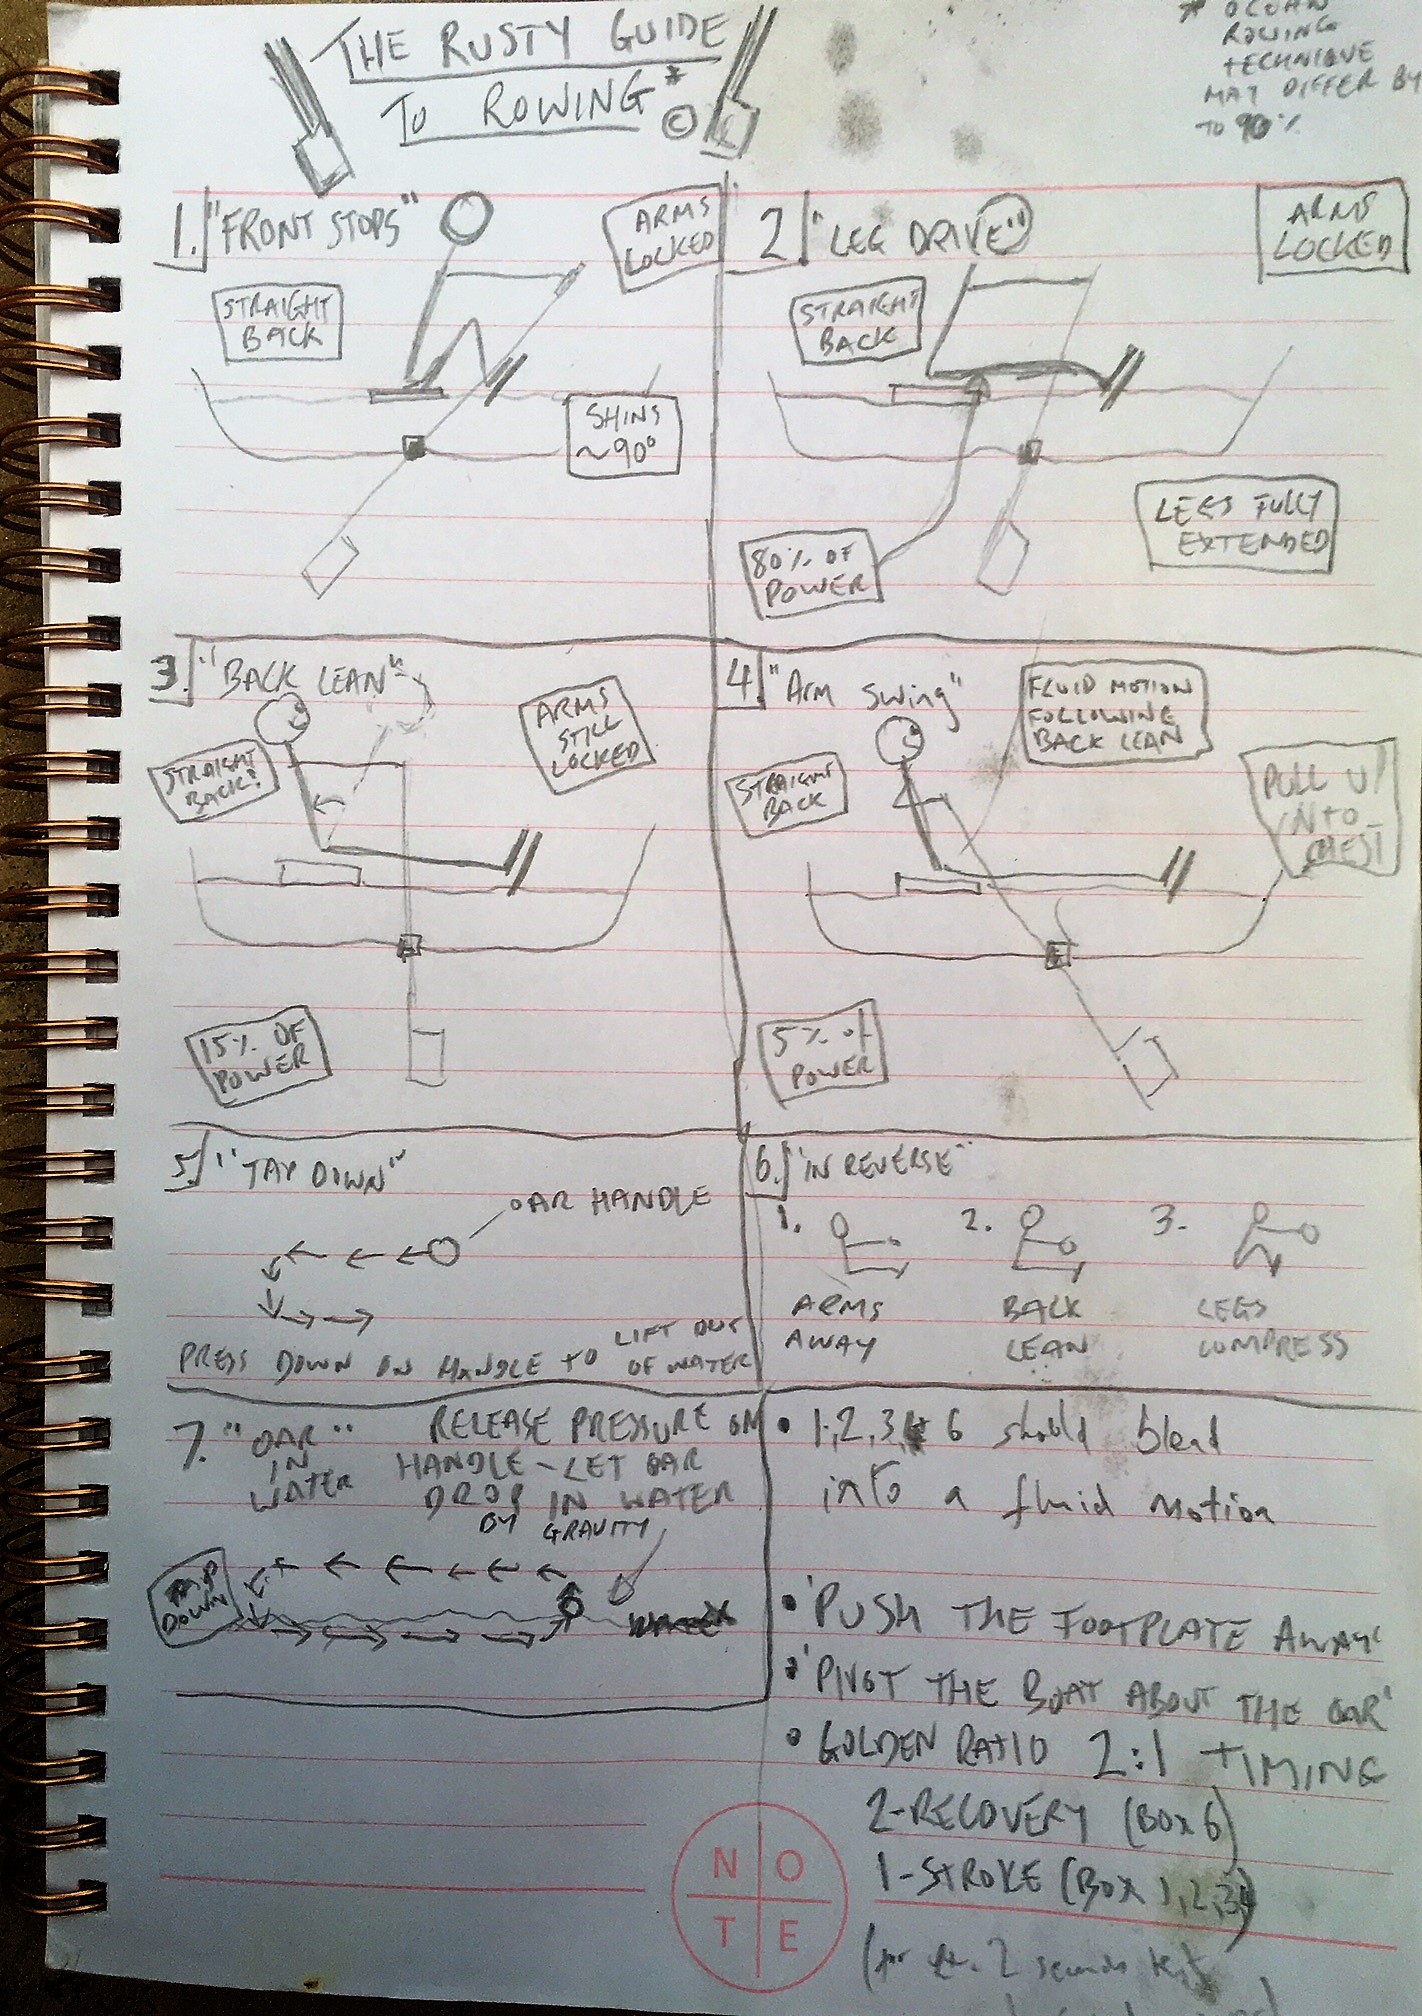 THE RUSTY GUIDE
TO ROWING*
©
* OCEAN
ROWING
TECHNIQUE
MAY DIFFER BY
TO 90%
1. "FRONT STOPS"
ARMS
LOCKED
STRAIGHT
BACK
SHINS
~90°
2 "LEG DRIVE"
ARMS
LOCKED
STRAIGHT
BACK
LEGS FULLY
EXTENDED
80% OF
POWER
3. "BACK LEAN"
ARMS
STILL
LOCKED
STRAIGHT
BACK!
15% OF
POWER
4. "Arm Swing"
FLUID MOTION
FOLLOWING
BACK LEAN
STRAIGHT
BACK
PULL UP
INTO
CHEST
5% of
POWER
5. "TAP DOWN"
OAR HANDLE
PRESS DOWN ON HANDLE TO LIFT OUT
OF WATER
6. "IN REVERSE"
1. 2. 3.
ARMS
AWAY
BACK
LEAN
LEGS
COMPRESS
7. "OAR"
IN
WATER
RELEASE PRESSURE ON
HANDLE - LET OAR
DROP IN WATER
BY GRAVITY
TAP
DOWN
• 1,2,3,4 6 should blend
into a fluid motion
• 'PUSH THE FOOTPLATE AWAY'
• 'PIVOT THE BOAT ABOUT THE OAR'
• GOLDEN RATIO 2:1 TIMING
2-RECOVERY (BOX 6)
1-STROKE (BOX 1,2,3,4)
(for 2 seconds
N O
T E